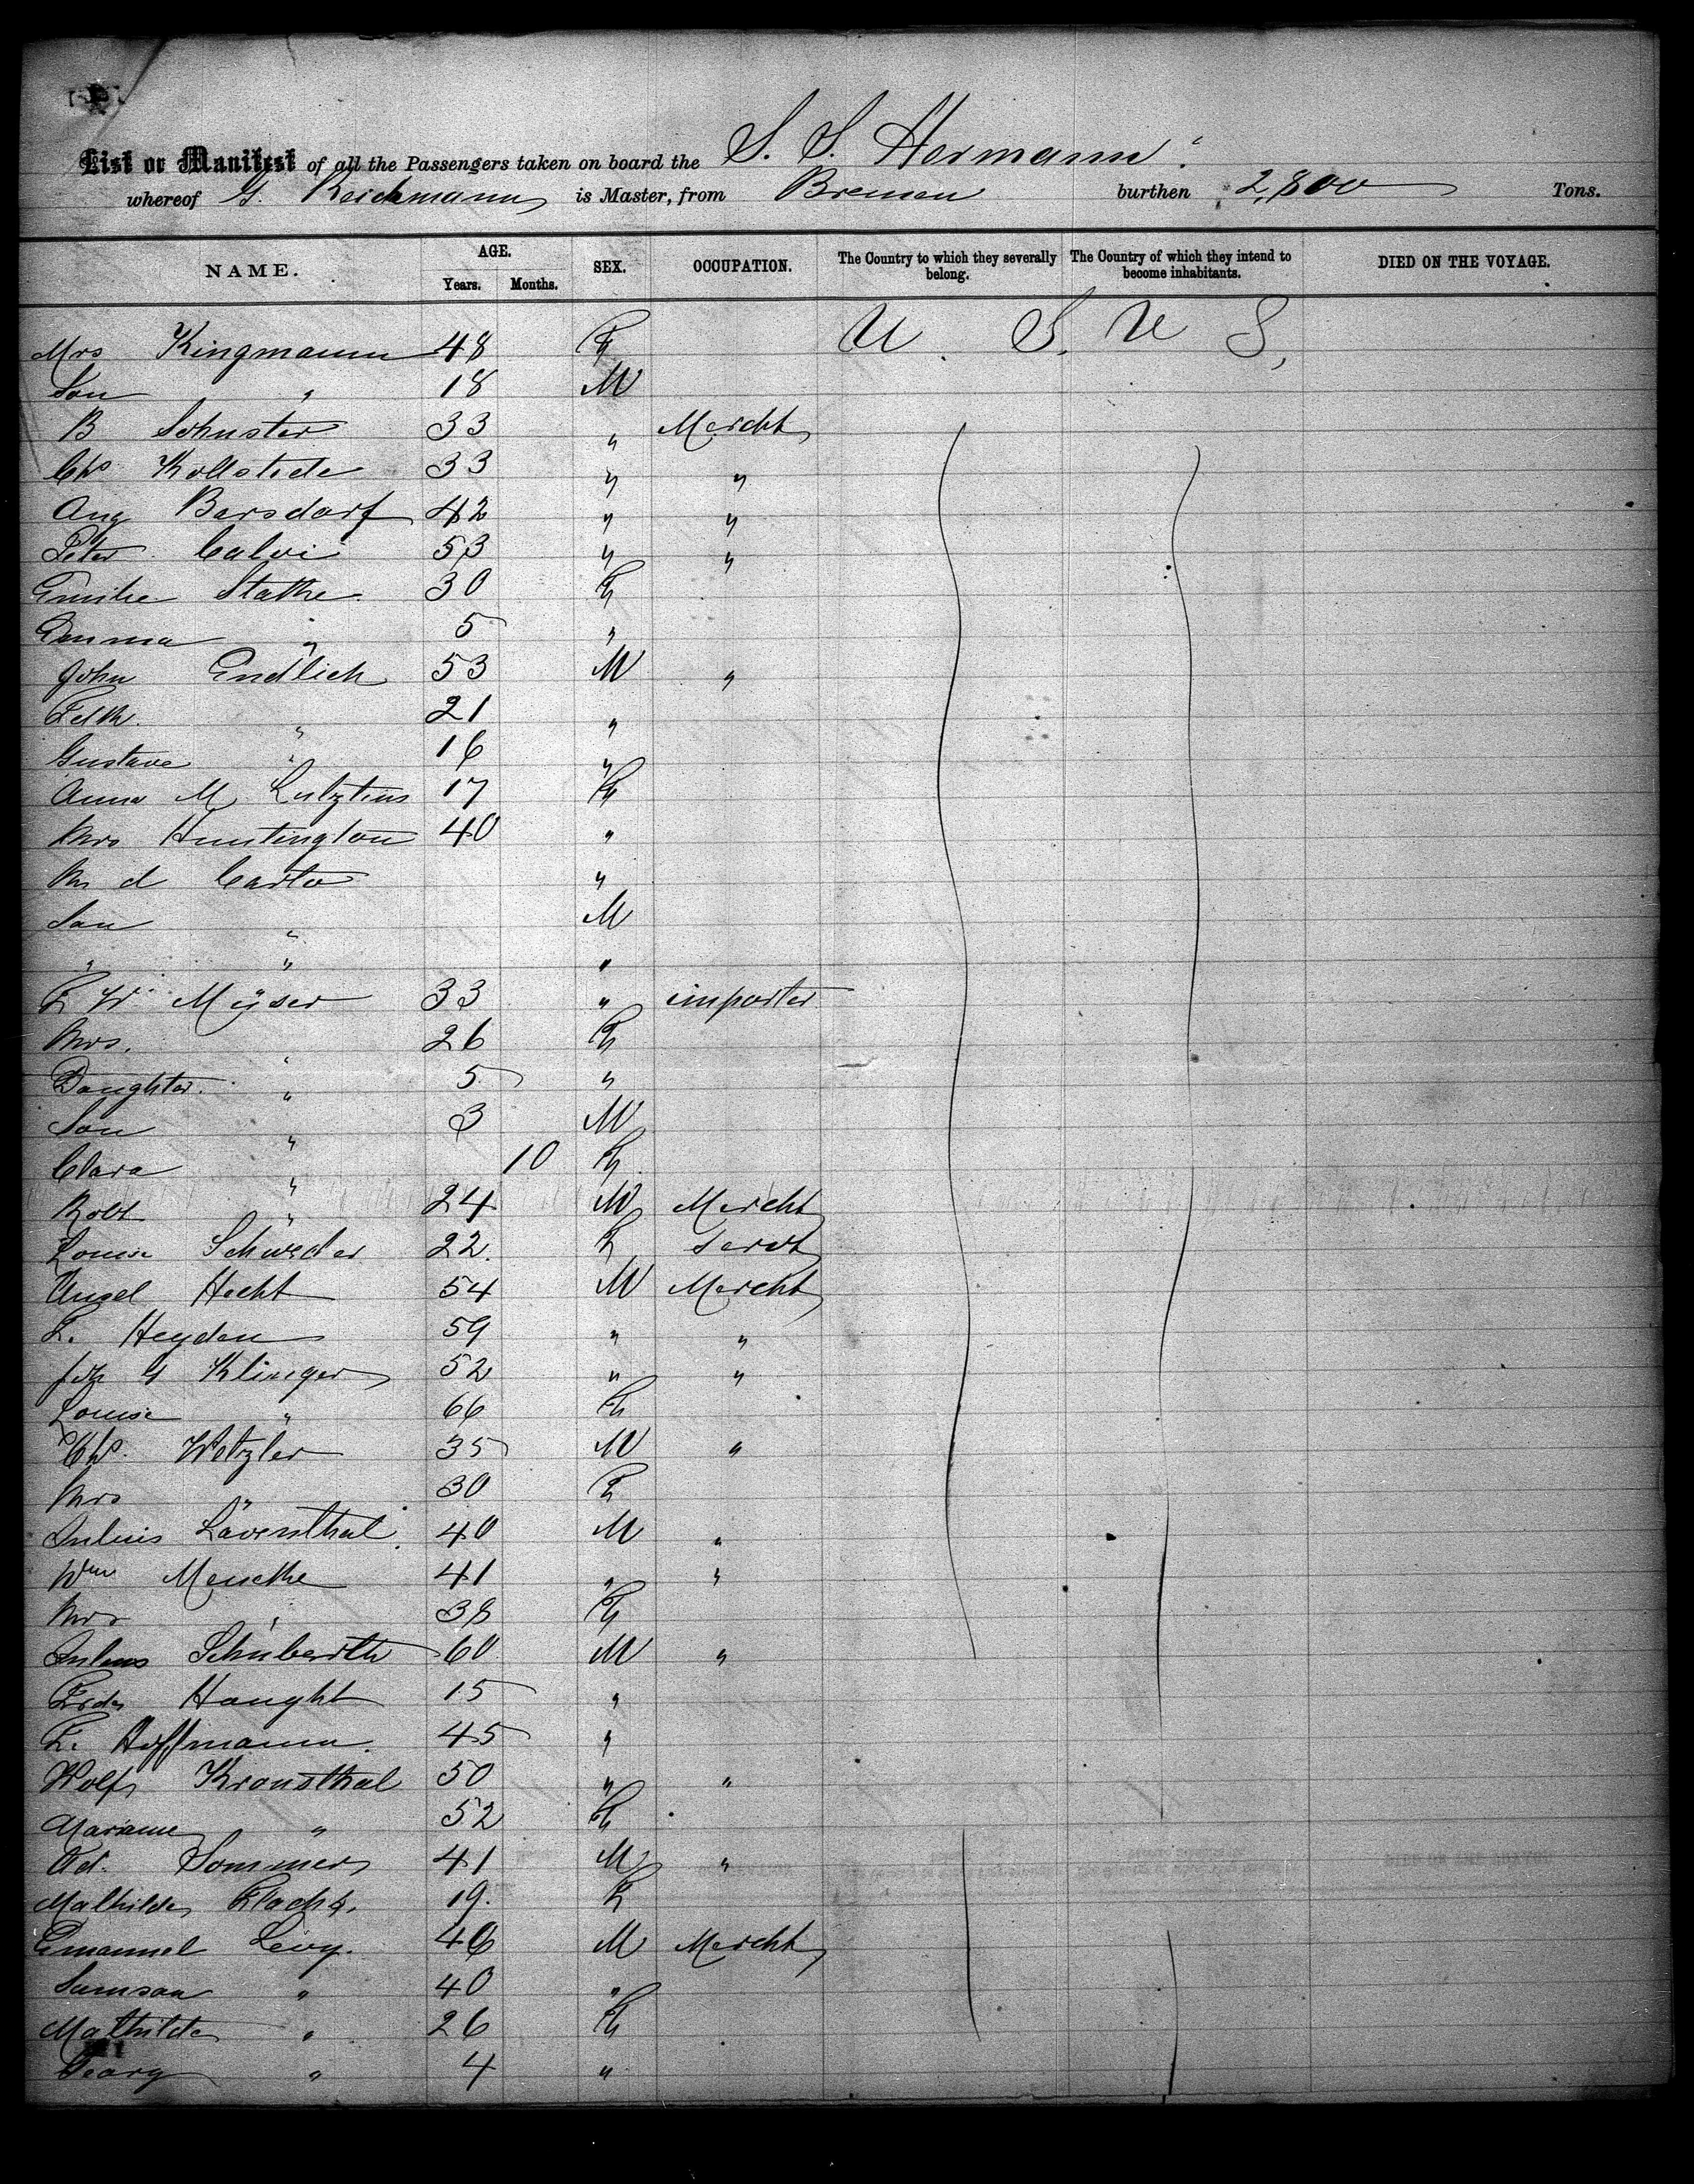 List or Manifest of all the Passengers taken on board the S. S. Hermann
whereof G. Reichmann is Master, from Bremen burthen 2,800 Tons.
NAME. AGE. Years. Months. SEX. OCCUPATION. The Country to which they severally belong. The Country of which they intend to become inhabitants. DIED ON THE VOYAGE.
Mrs Kingmann 48 F U. S. U S.
Son " 18 M
B Schuster 33 " Mercht
Chs Kollstede 33 " "
Aug Barsdorf 42 " "
Peter Calvi 53 " "
Emilie Stathe 30 F
Emma " 5 "
John Endlich 53 M "
" 21 "
Gustave " 16 "
Anna M. 17 F
Mrs Huntington 40 "
"
Son " M
" " "
F W Meyser 33 " importer
Mrs. " 26 F
Daughter " 5 "
Son " 3 M
Clara " 10 F
Robt " 24 M Mercht
Louise Schweder 22. F Servt
Hecht 54 M Mercht
F. Heyden 59 " "
Joh G Klinger 52 " "
Louise " 66 F
Chs. Wetzler 35 M "
Mrs " 30 F
Julius Löventhal 40 M "
Wm Mencke 41 " "
Mrs " 38 F
Julius Schuberth 60 M "
Haught 15 "
F. Hoffmann. 45 "
Wolf Kronsthal 50 " "
Mariane " 52 F
Ad. Sommer 41 M "
Mathilde 19. F
Emanuel Levy. 46 M Mercht
Samson " 40 "
Mathilde " 26 F
Georg " 4 "